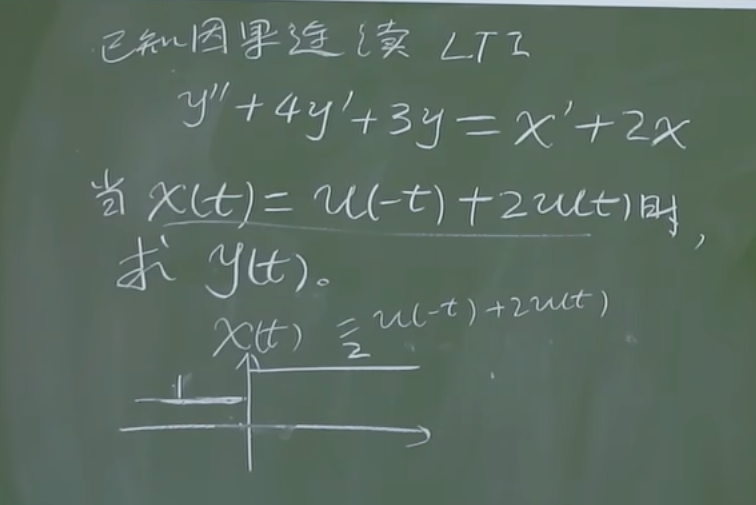 已知因果连续 LTI
y″+4y′+3y=x′+2x
当 x(t)=u(-t)+2u(t)时,
求 y(t)。
x(t) = u(-t)+2u(t)
2
1